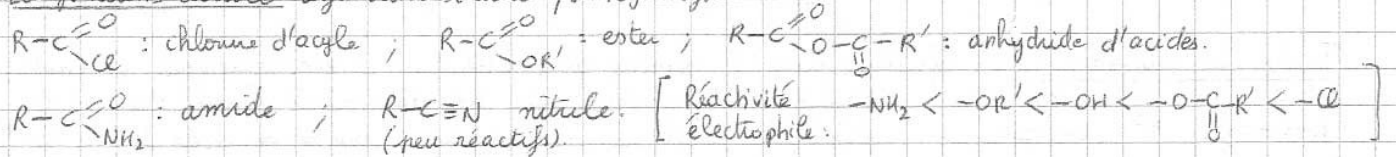 R-C(=O)-Cl : chlorure d'acyle ; R-C(=O)-OR' : ester ; R-C(=O)-O-C(=O)-R' : anhydride d'acides.
R-C(=O)-NH₂ : amide ; R-C≡N nitrile. (peu réactifs). [Réactivité électrophile : -NH₂ < -OR' < -OH < -O-C(=O)-R' < -Cl]